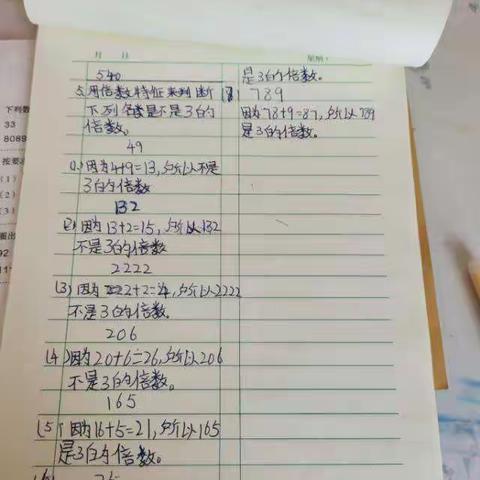 月 日
星期：
540
5.用倍数特征来判断
下列各数是不是3的
倍数。
49
(1)因为4+9=13,所以不是
3的倍数
132
(2)因为13+2=15,所以132
不是3的倍数
2222
(3)因为222+2=4,所以2222
不是3的倍数。
206
(4)因为20+6=26,所以206
不是3的倍数。
165
(5)因为16+5=21,所以165
是3的倍数。
(6)
是3的倍数。
(8) 789
因为78+9=87,所以789
是3的倍数。
下列数
33
8089
按要求
(1)
(2)
(3)
圈出
92